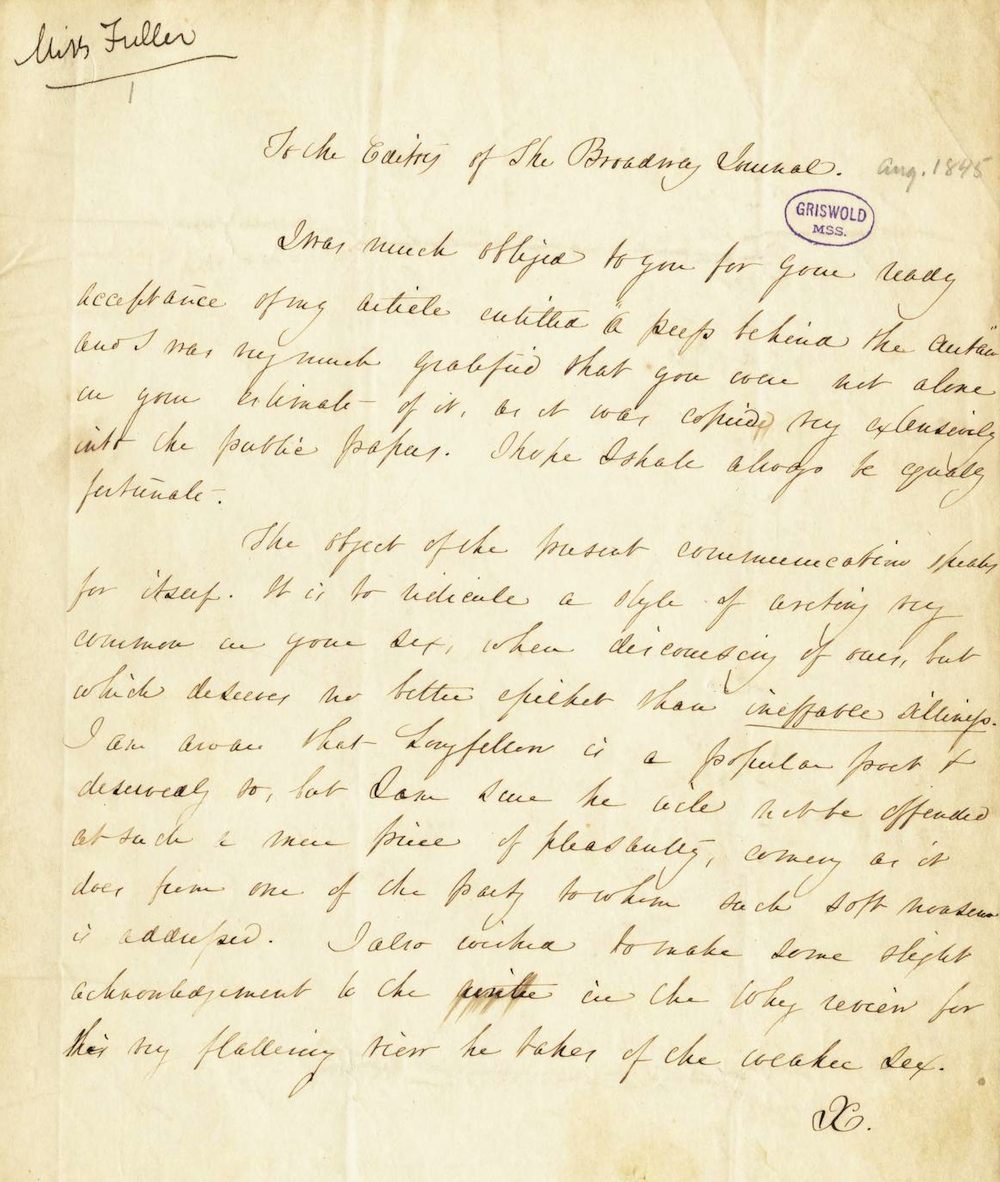 Miss Fuller
1
To the Editors of The Broadway Journal.
Aug. 1845
GRISWOLD
MSS.
I was much obliged to you for your ready
acceptance of my article entitled "a peep behind the curtain"
and I was very much gratified that you were not alone
in your estimate of it, as it was copied very extensively
into the public papers. I hope I shall always be equally
fortunate.
The object of the present communication speaks
for itself. It is to ridicule a style of writing very
common in your sex, when discoursing of ours, but
which deserves no better epithet than ineffable silliness.
I am aware that Longfellow is a popular poet &
deservedly so, but I am sure he will not be offended
at such a mere piece of pleasantry, coming as it
does from one of the party to whom such soft nonsense
is addressed. I also wished to make some slight
acknowledgement to the in the Whig review for
his very flattering view he takes of the weaker sex.
X.